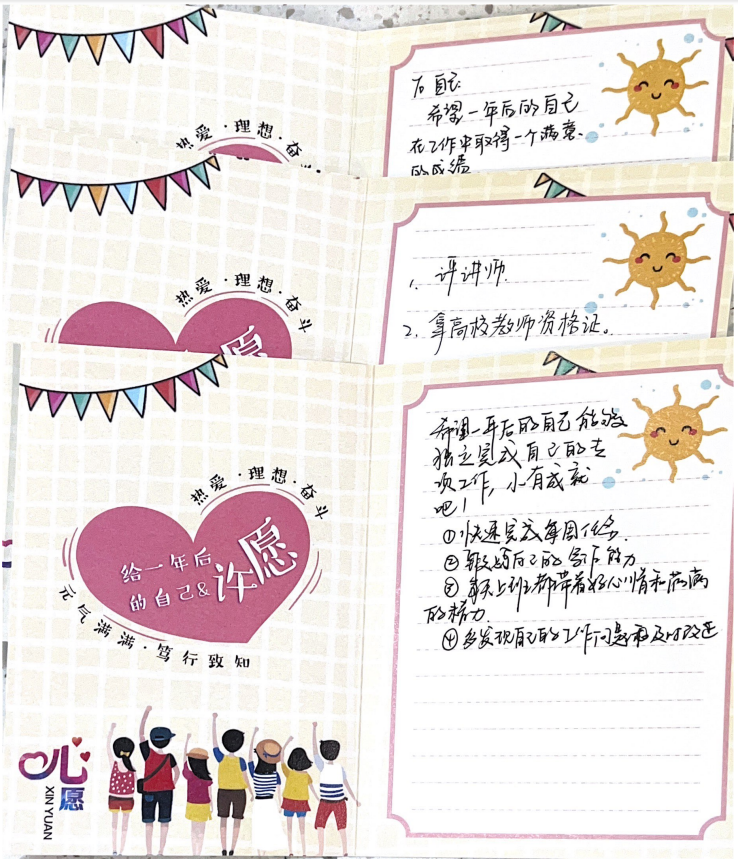 热爱·理想·奋
自己:
希望一年后的自己
在工作中取得一个满意
的成绩
热爱·理想·奋斗
愿
1. 评讲师.
2. 拿高校教师资格证。
热爱·理想·奋斗
给一年后
的自己&许愿
元气满满·笃行致知
心愿
XIN YUAN
希望一年后的自己能够
独立完成自己的专
项工作,小有成就
吧!
①快速完成每周任务.
②锻炼自己的写作能力
③每天上班都带着好心情和满满
的精力.
④多发现自己的工作问题和及时改进